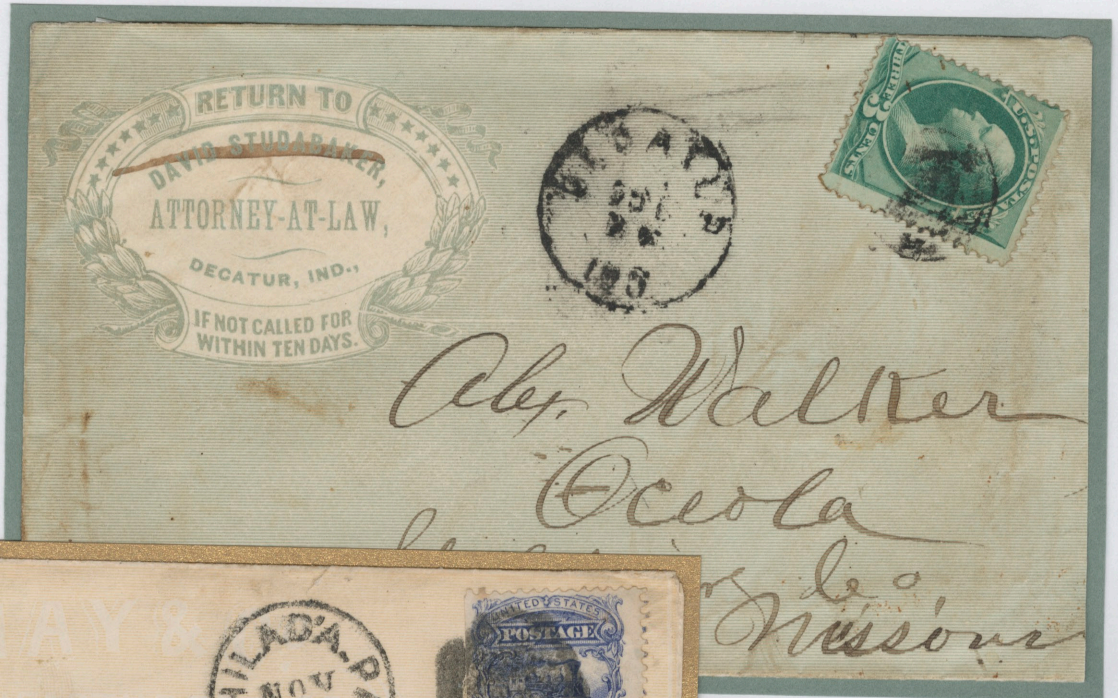 RETURN TO
DAVID STUDABAKER,
ATTORNEY-AT-LAW,
DECATUR, IND.,
IF NOT CALLED FOR
WITHIN TEN DAYS.
DECATUR
IND
U.S. POSTAGE
THREE 3 CENTS
Alex. Walker
Oceola
Co
Missouri
AY &
PHILAD'A. PA
NOV
UNITED STATES
POSTAGE